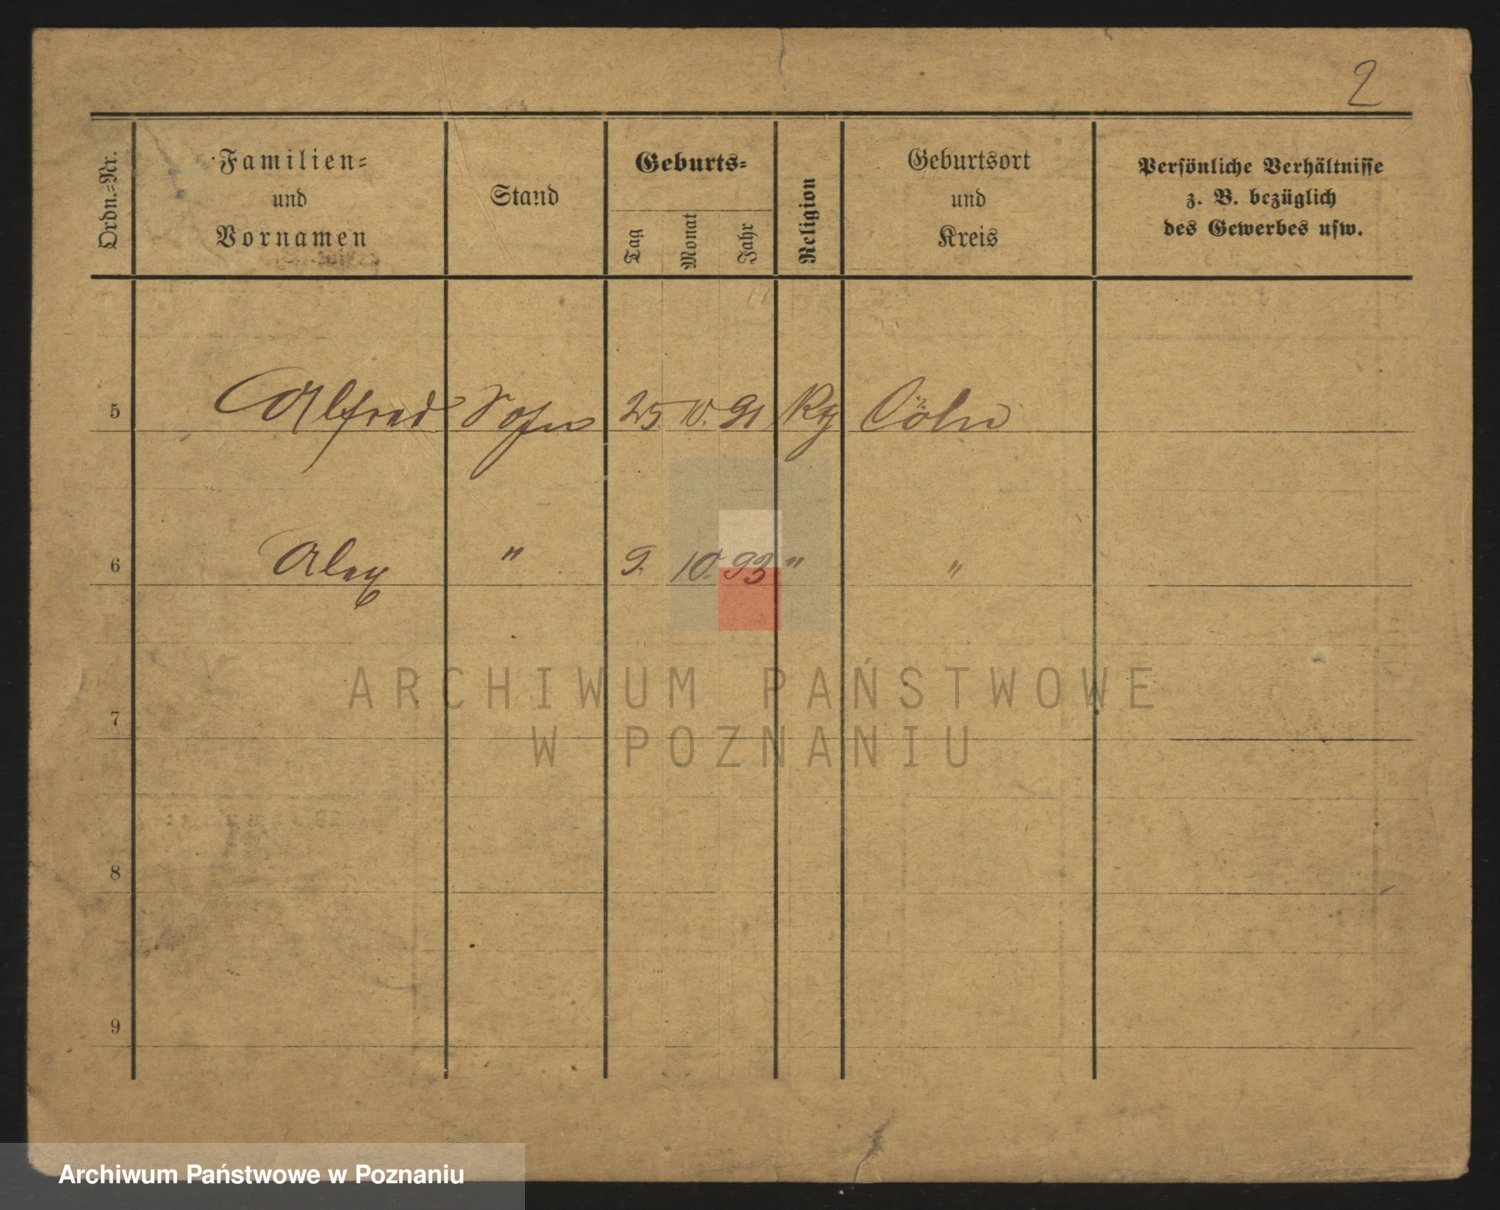 2
Ordn.-Nr.
Familien-
und
Vornamen
Stand
Geburts-
Tag
Monat
Jahr
Religion
Geburtsort
und
Kreis
Persönliche Verhältnisse
z. B. bezüglich
des Gewerbes usw.
5 Alfred Sohn 25 10. 91 Cöln
6 Alex " 9. 10. 93 " "
7
8
9
ARCHIWUM PAŃSTWOWE
W POZNANIU
Archiwum Państwowe w Poznaniu